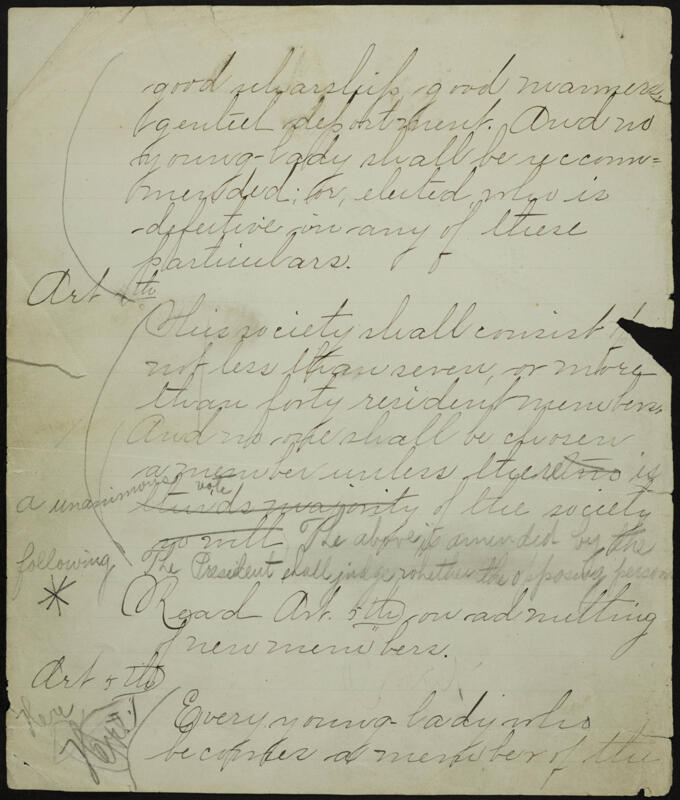 good scholarship, good manners,
genteel deportment. And no
young-lady shall be recom=
mended; or, elected, who is
defective in any of these
particulars.
Art 4th
This society shall consist of
not less than seven, or more
than forty resident members.
And no one shall be chosen
a member unless there two is
a unanimous vote
thirds majority of the society
so will The above is amended by the
following The President shall judge whether the opposing person
* Read Art. 5th on admitting
of new members.
Art 5th
Here
Here
Every young-lady who
becomes a member of the